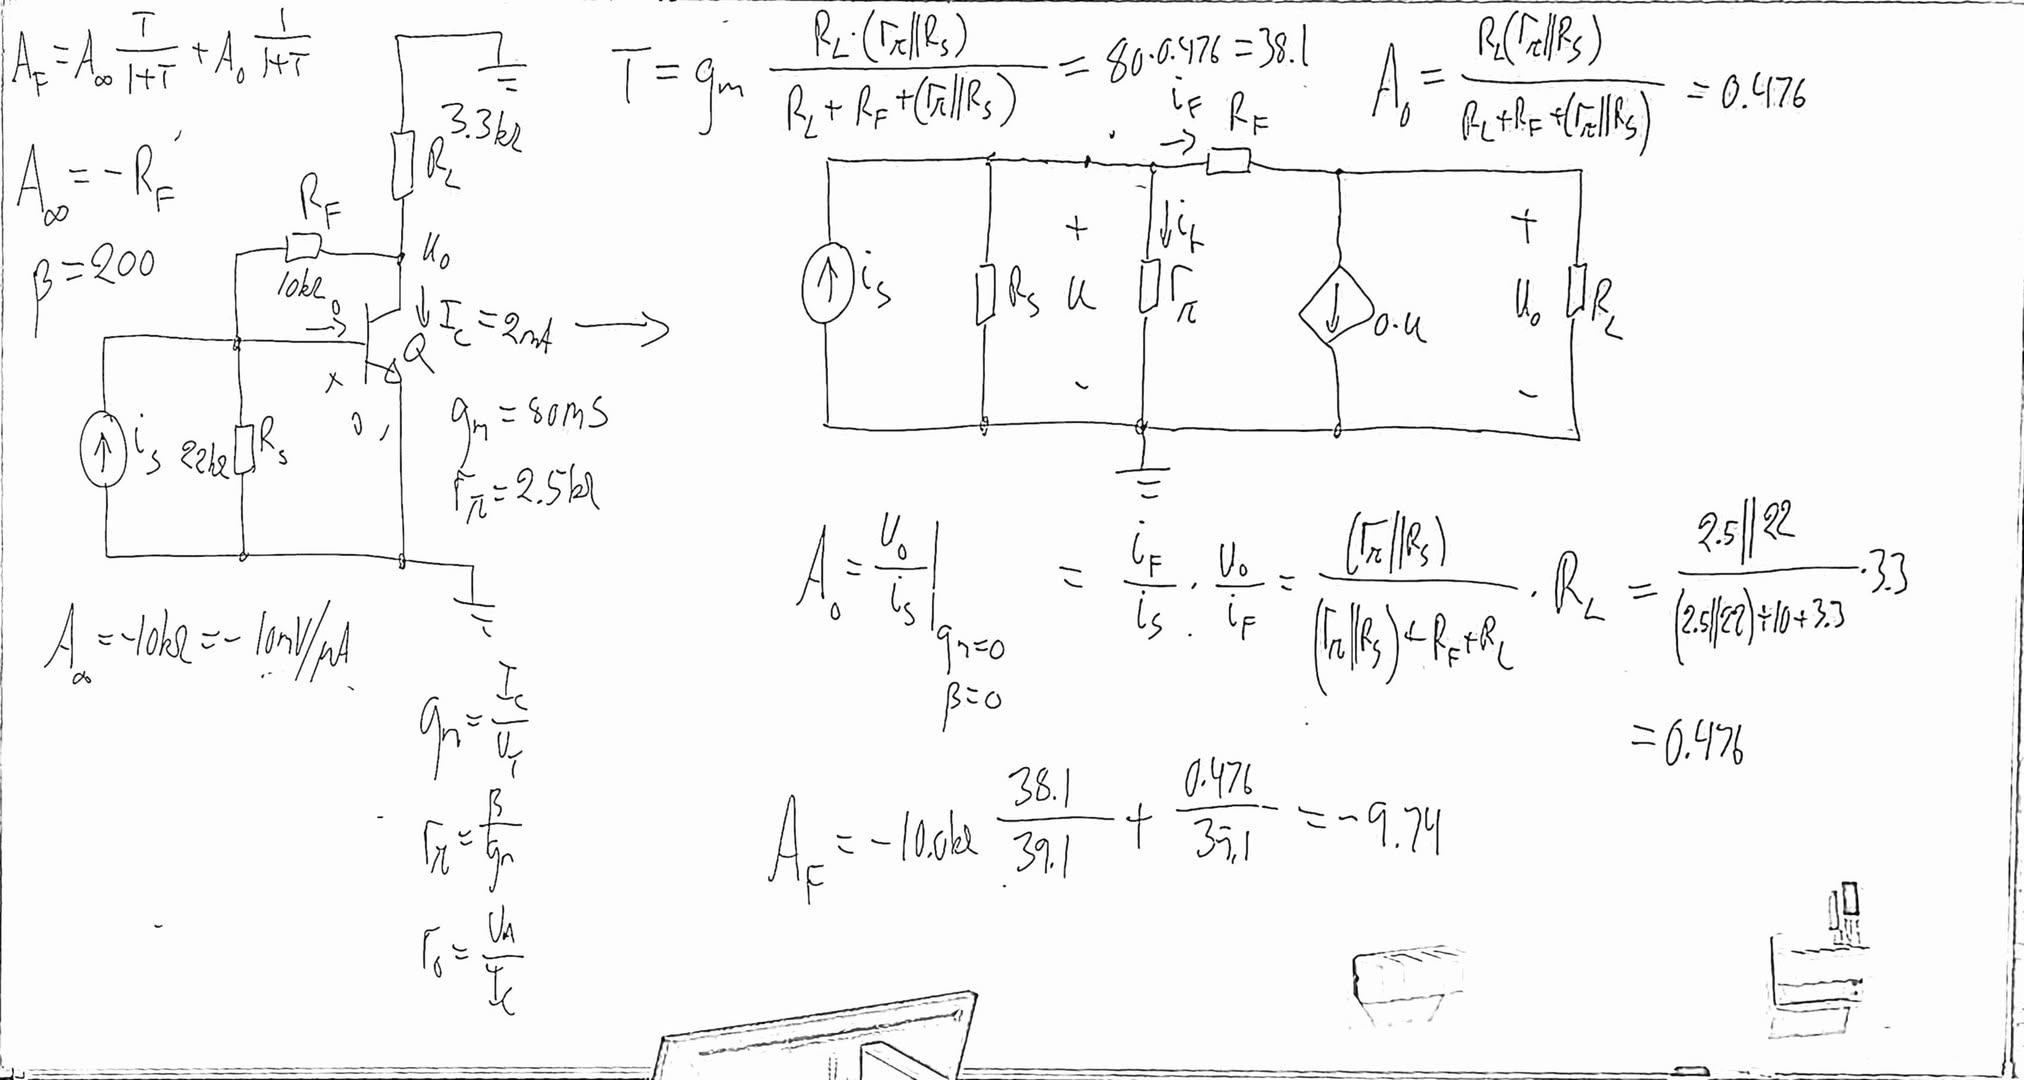 A_F = A_∞ T/(1+T) + A_0 1/(1+T)
A_∞ = -R_F
β = 200
R_F
10kΩ
3.3kΩ
R_L
u_o
0
I_C = 2mA
Q
x
0,
i_s
22kΩ
R_s
g_m = 80mS
r_π = 2.5kΩ
A_∞ = -10kΩ = -10mV/μA
g_m = I_C/U_T
r_π = β/g_m
r_o = U_A/I_C
T = g_m R_L·(r_π||R_s)/(R_L + R_F + (r_π||R_s)) = 80·0.476 = 38.1
A_0 = R_L(r_π||R_s)/(R_L+R_F+(r_π||R_s)) = 0.476
i_F
R_F
i_s
R_s
+
u
-
r_π
0·u
+
u_o
-
R_L
A_0 = u_o/i_s | g_m=0 β=0 = i_F/i_s · u_o/i_F = (r_π||R_s)/((r_π||R_s)+R_F+R_L) · R_L = 2.5||22/((2.5||22)+10+3.3) ·3.3
= 0.476
A_F = -10.0kΩ 38.1/39.1 + 0.476/39.1 = -9.74